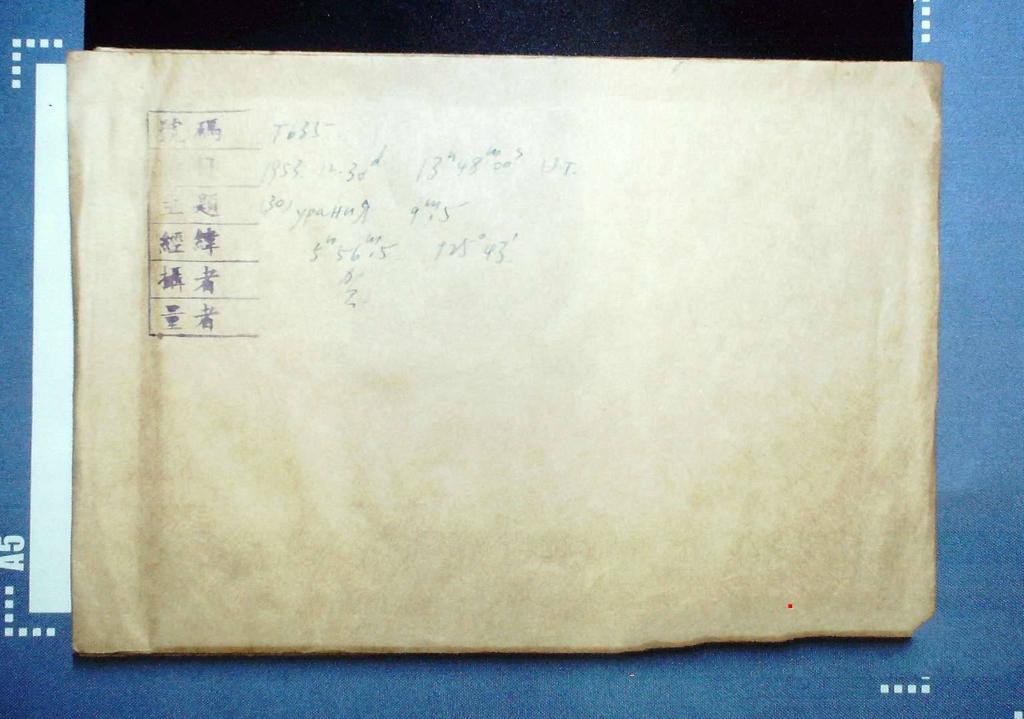 號碼 T635
1953. 12. 30ᵈ 13ʰ48ᵐ00ˢ U.T.
主題 (30) урания 9ᵐ.5
經緯 5ʰ56ᵐ.5 +25°43'
攝者
量者
A5